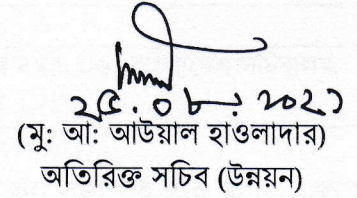 ২৫.০৮.২০২১
(মু: আ: আউয়াল হাওলাদার)
অতিরিক্ত সচিব (উন্নয়ন)